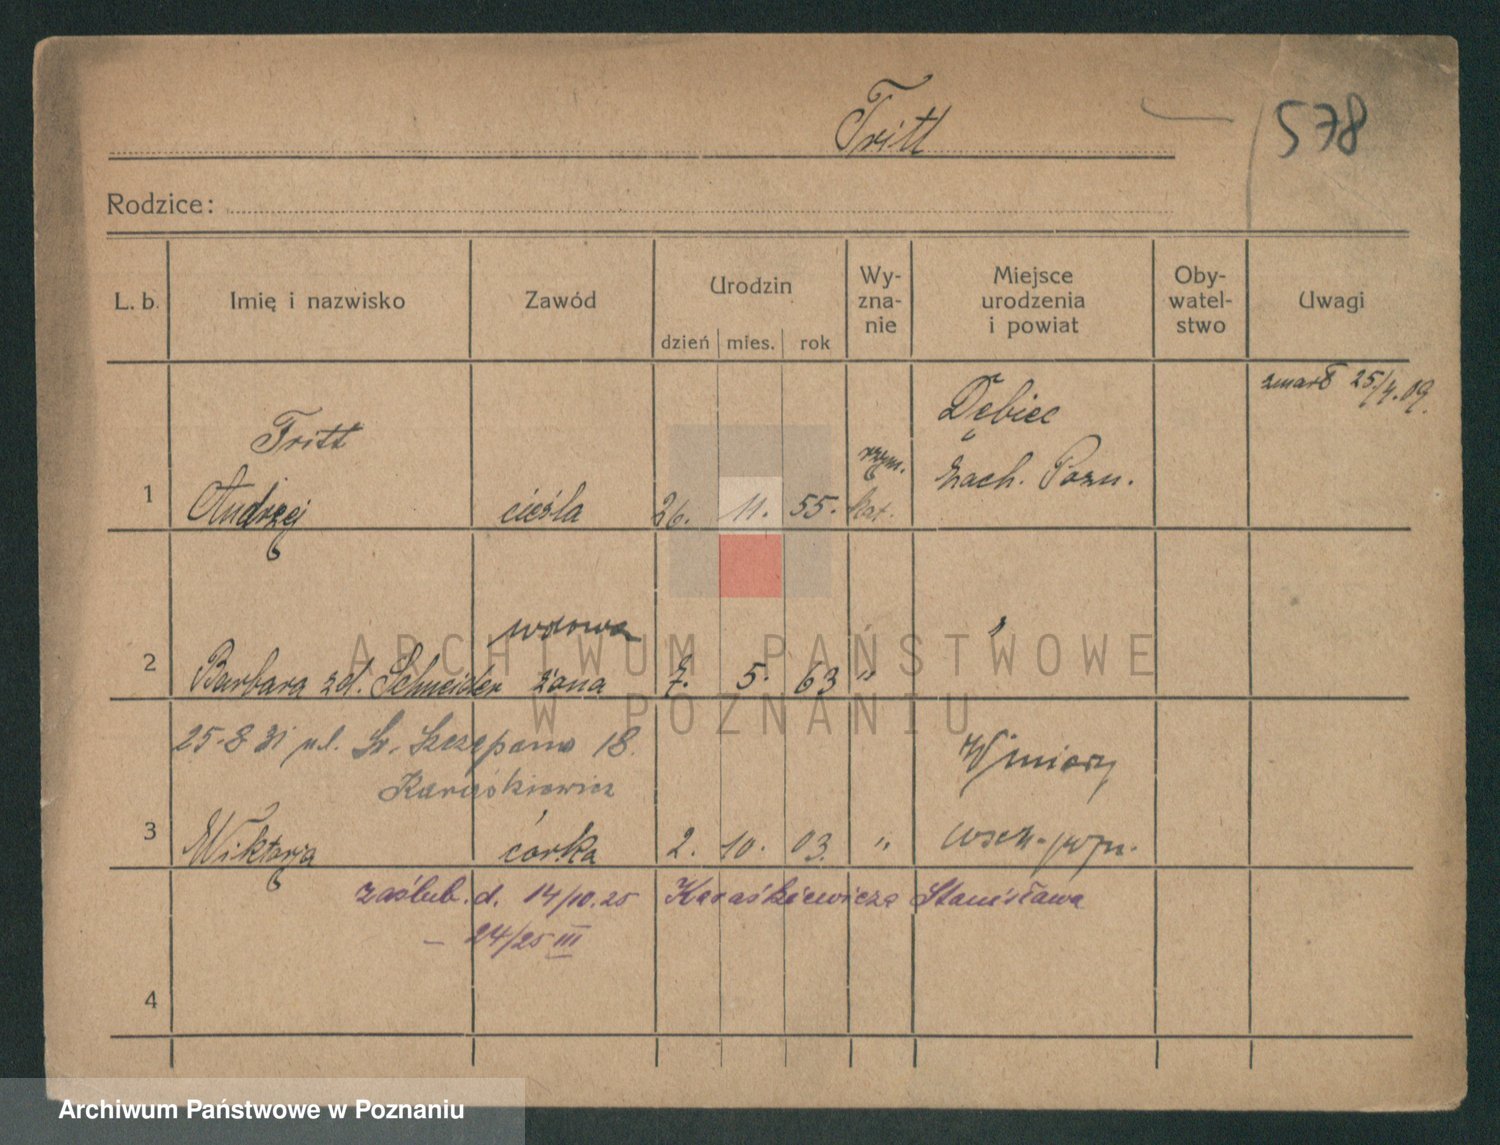 Tritt
578
Rodzice:
L. b.
Imię i nazwisko
Zawód
Urodzin
dzień mies. rok
Wy-
zna-
nie
Miejsce
urodzenia
i powiat
Oby-
watel-
stwo
Uwagi
zmarł 25/4.09.
Tritt
Dębiec
rzym.
zach. Pozn.
1 Andrzej cieśla 26. 11. 55. kat.
wdowa
2 Barbara zd. Schneider żona 7. 5. 63 " "
25-8 31 ul. Św. Szczepana 18.
Winiary
Karaśkiewicz
3 Wiktorja córka 2. 10. 03. " wsch. pozn.
zaślub. d. 14/10.25 Karaśkiewicza Stanisława
— 24/25 III
4
ARCHIWUM PAŃSTWOWE
W POZNANIU
Archiwum Państwowe w Poznaniu